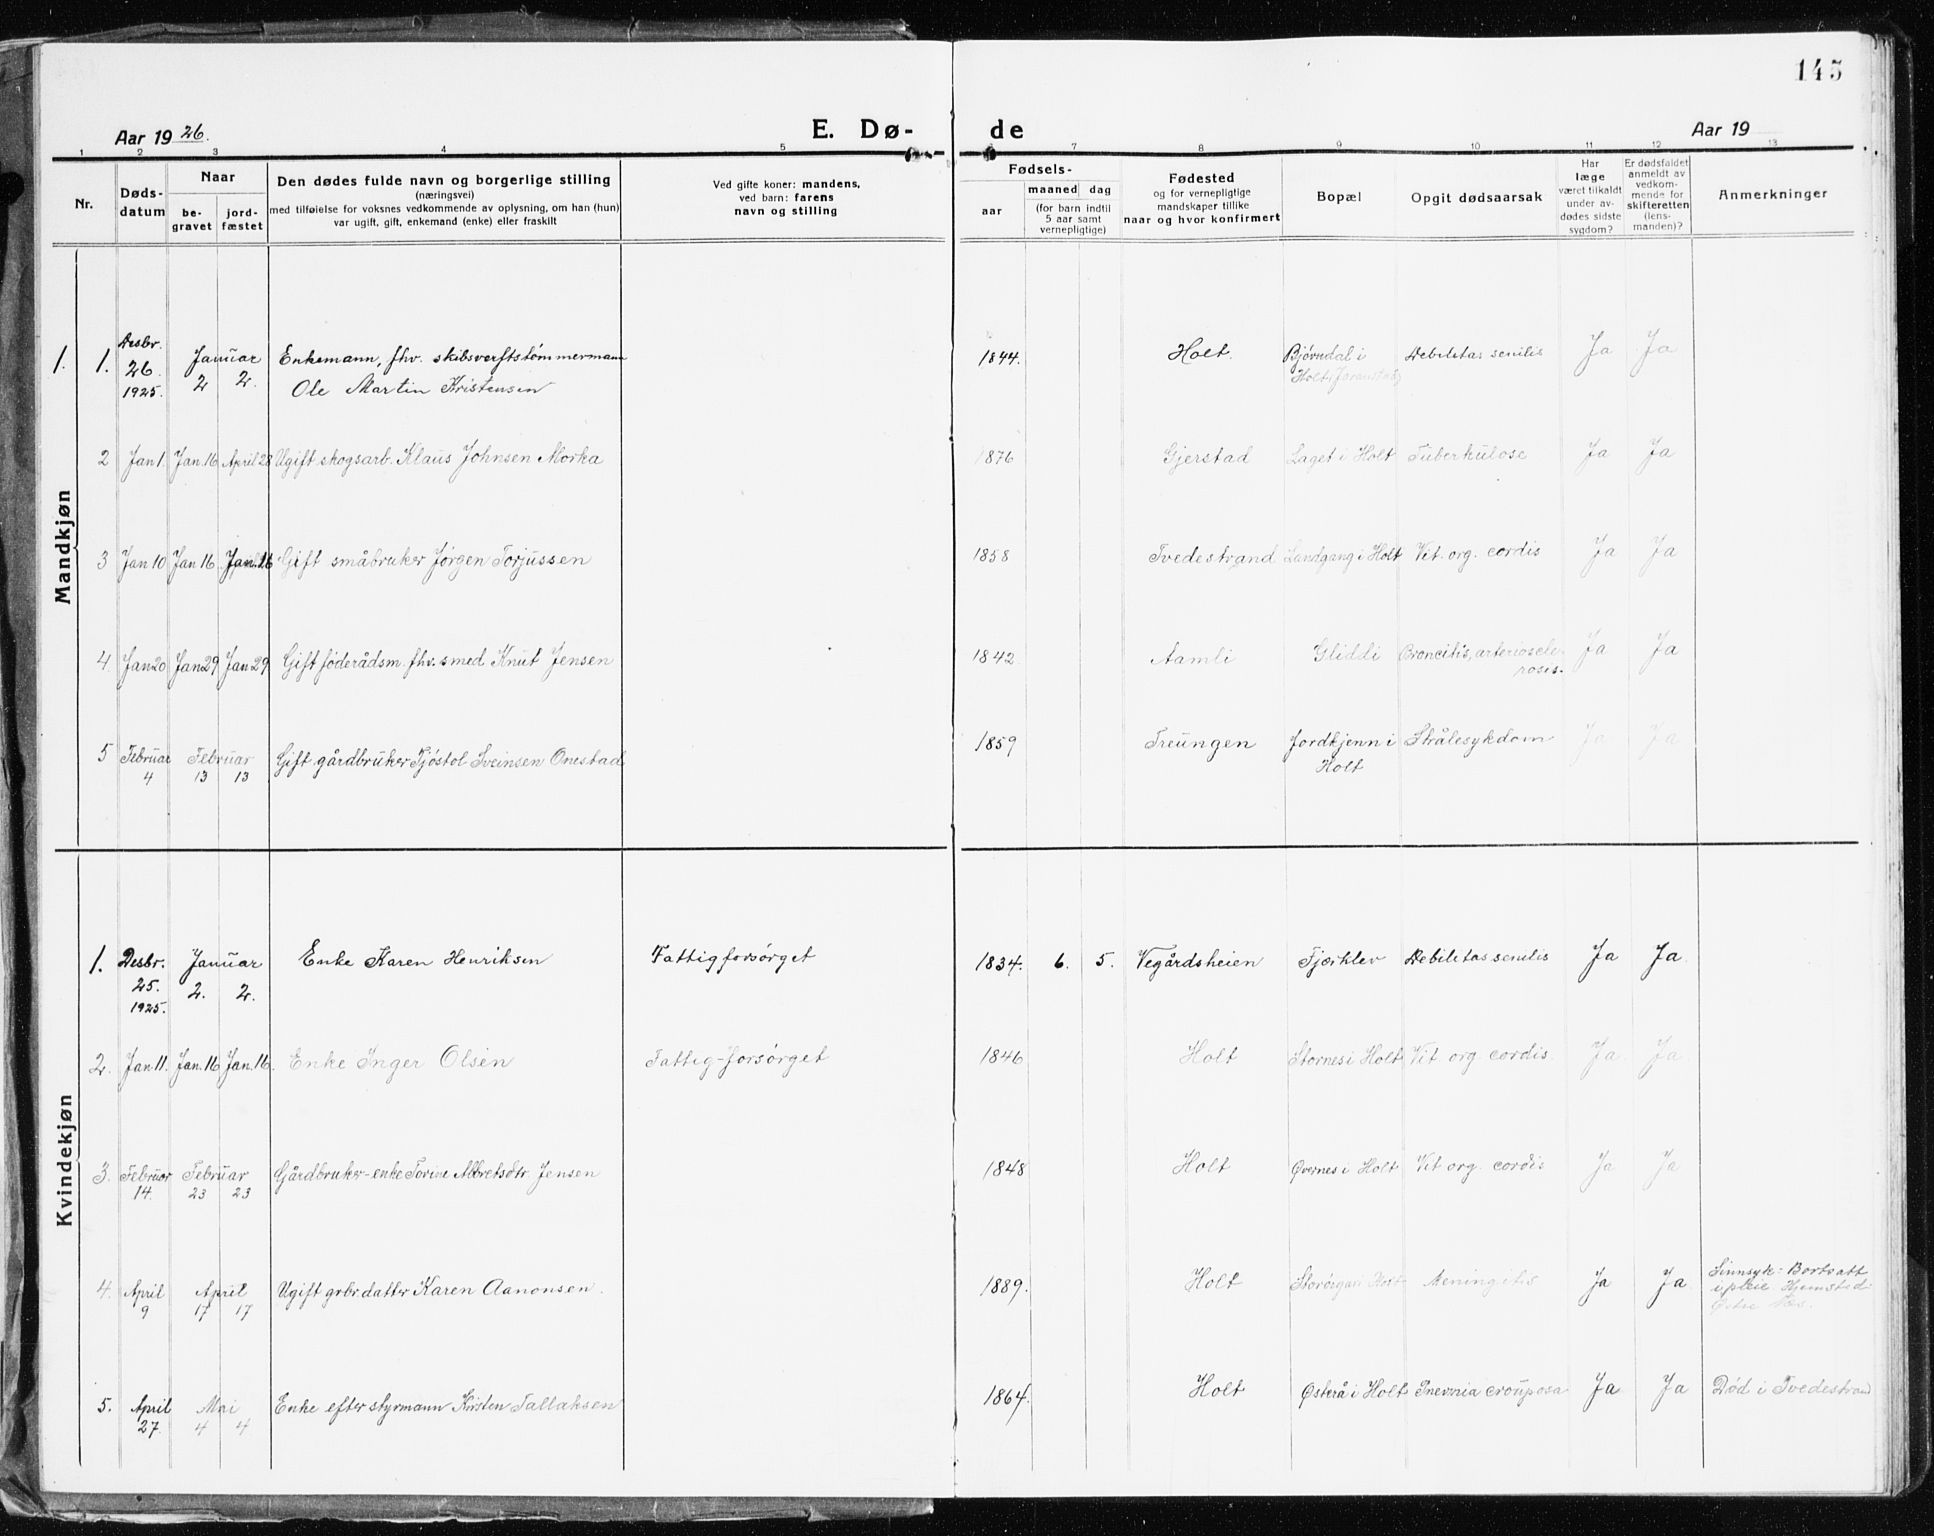 145
Aar 1926.
E. Dø-
de
Aar 19
1 2 3 4 5 7 8 9 10 11 12 13
Nr.
Døds-
datum
Naar
be-
gravet
jord-
fæstet
Den dødes fulde navn og borgerlige stilling
(næringsvei)
med tilføielse for voksnes vedkommende av oplysning, om han (hun)
var ugift, gift, enkemand (enke) eller fraskilt
Ved gifte koner: mandens,
ved barn: farens
navn og stilling
Fødsels-
aar
maaned dag
(for barn indtil
5 aar samt
vernepligtige)
Fødested
og for vernepligtige
mandskaper tillike
naar og hvor konfirmert
Bopæl
Opgit dødsaarsak
Har
læge
været tilkaldt
under av-
dødes sidste
sygdom?
Er dødsfaldet
anmeldt av
vedkom-
mende for
skifteretten
(lens-
manden)?
Anmerkninger
Mandkjøn
1. 1. Desbr. 26. 1925. Januar 2 2. Enkemann, fhv. skibsverftstømmermann
Ole Martin Kristensen
1844. Holt. Bjørndal i Debilitas senilis Ja Ja
Holt,
2 Jan 1. Jan. 16 April 28 Ugift skogsarb. Klaus Johnsen Morka 1876 Gjerstad Laget i Holt Tuberkulose Ja Ja
3 Jan 10 Jan 16 Jan. 16 Gift småbruker Jørgen Torjussen 1858 Tvedestrand Landgang i Holt Vit. org. cordis Ja Ja
4. Jan 20 Jan 29 Jan 29 Gift föderådsm. fhv. smed Knut Jensen 1842 Aamli Gliddi Broncitis, arterioscle-
rosis.
Ja Ja
5 Februar 4 Februar 13 13 Gift gårdbruker Tjöstol Sveinsen Onestad 1859 Treungen Jordkjenn i Strålesykdom Ja Ja
Holt
Kvindekjøn
1. Desbr. 25. 1925. Januar 2. 2. Enke Karen Henriksen Fattigforsørget 1834. 6. 5. Vegårdsheien Fjærklev Debilitas senilis Ja Ja.
2. Jan 11. Jan. 16 Jan. 16. Enke Inger Olsen Fattig-forsørget 1846 Holt Stornes i Holt Vit org. cordis. Ja Ja
3. Februar 14. Februar 23 23 Gårdbruker-enke Torine Albretsdtr. Jensen 1848 Holt Øvernes i Holt Vit org. cordis Ja Ja
4. April 9 April 17 17 Ugift grbr. datter Karen Aanonsen. 1889. Holt Meningitis Ja Ja Sinnsyk: Bortsatt
i pleie. Hjemsted:
Østre Næs.
5. April 27. Mai 4 4 Enke efter styrmann Kirsten Tallaksen 1864. Holt Østerå i Holt Pnevnia crouposa Ja Ja Död i Tvedestrand